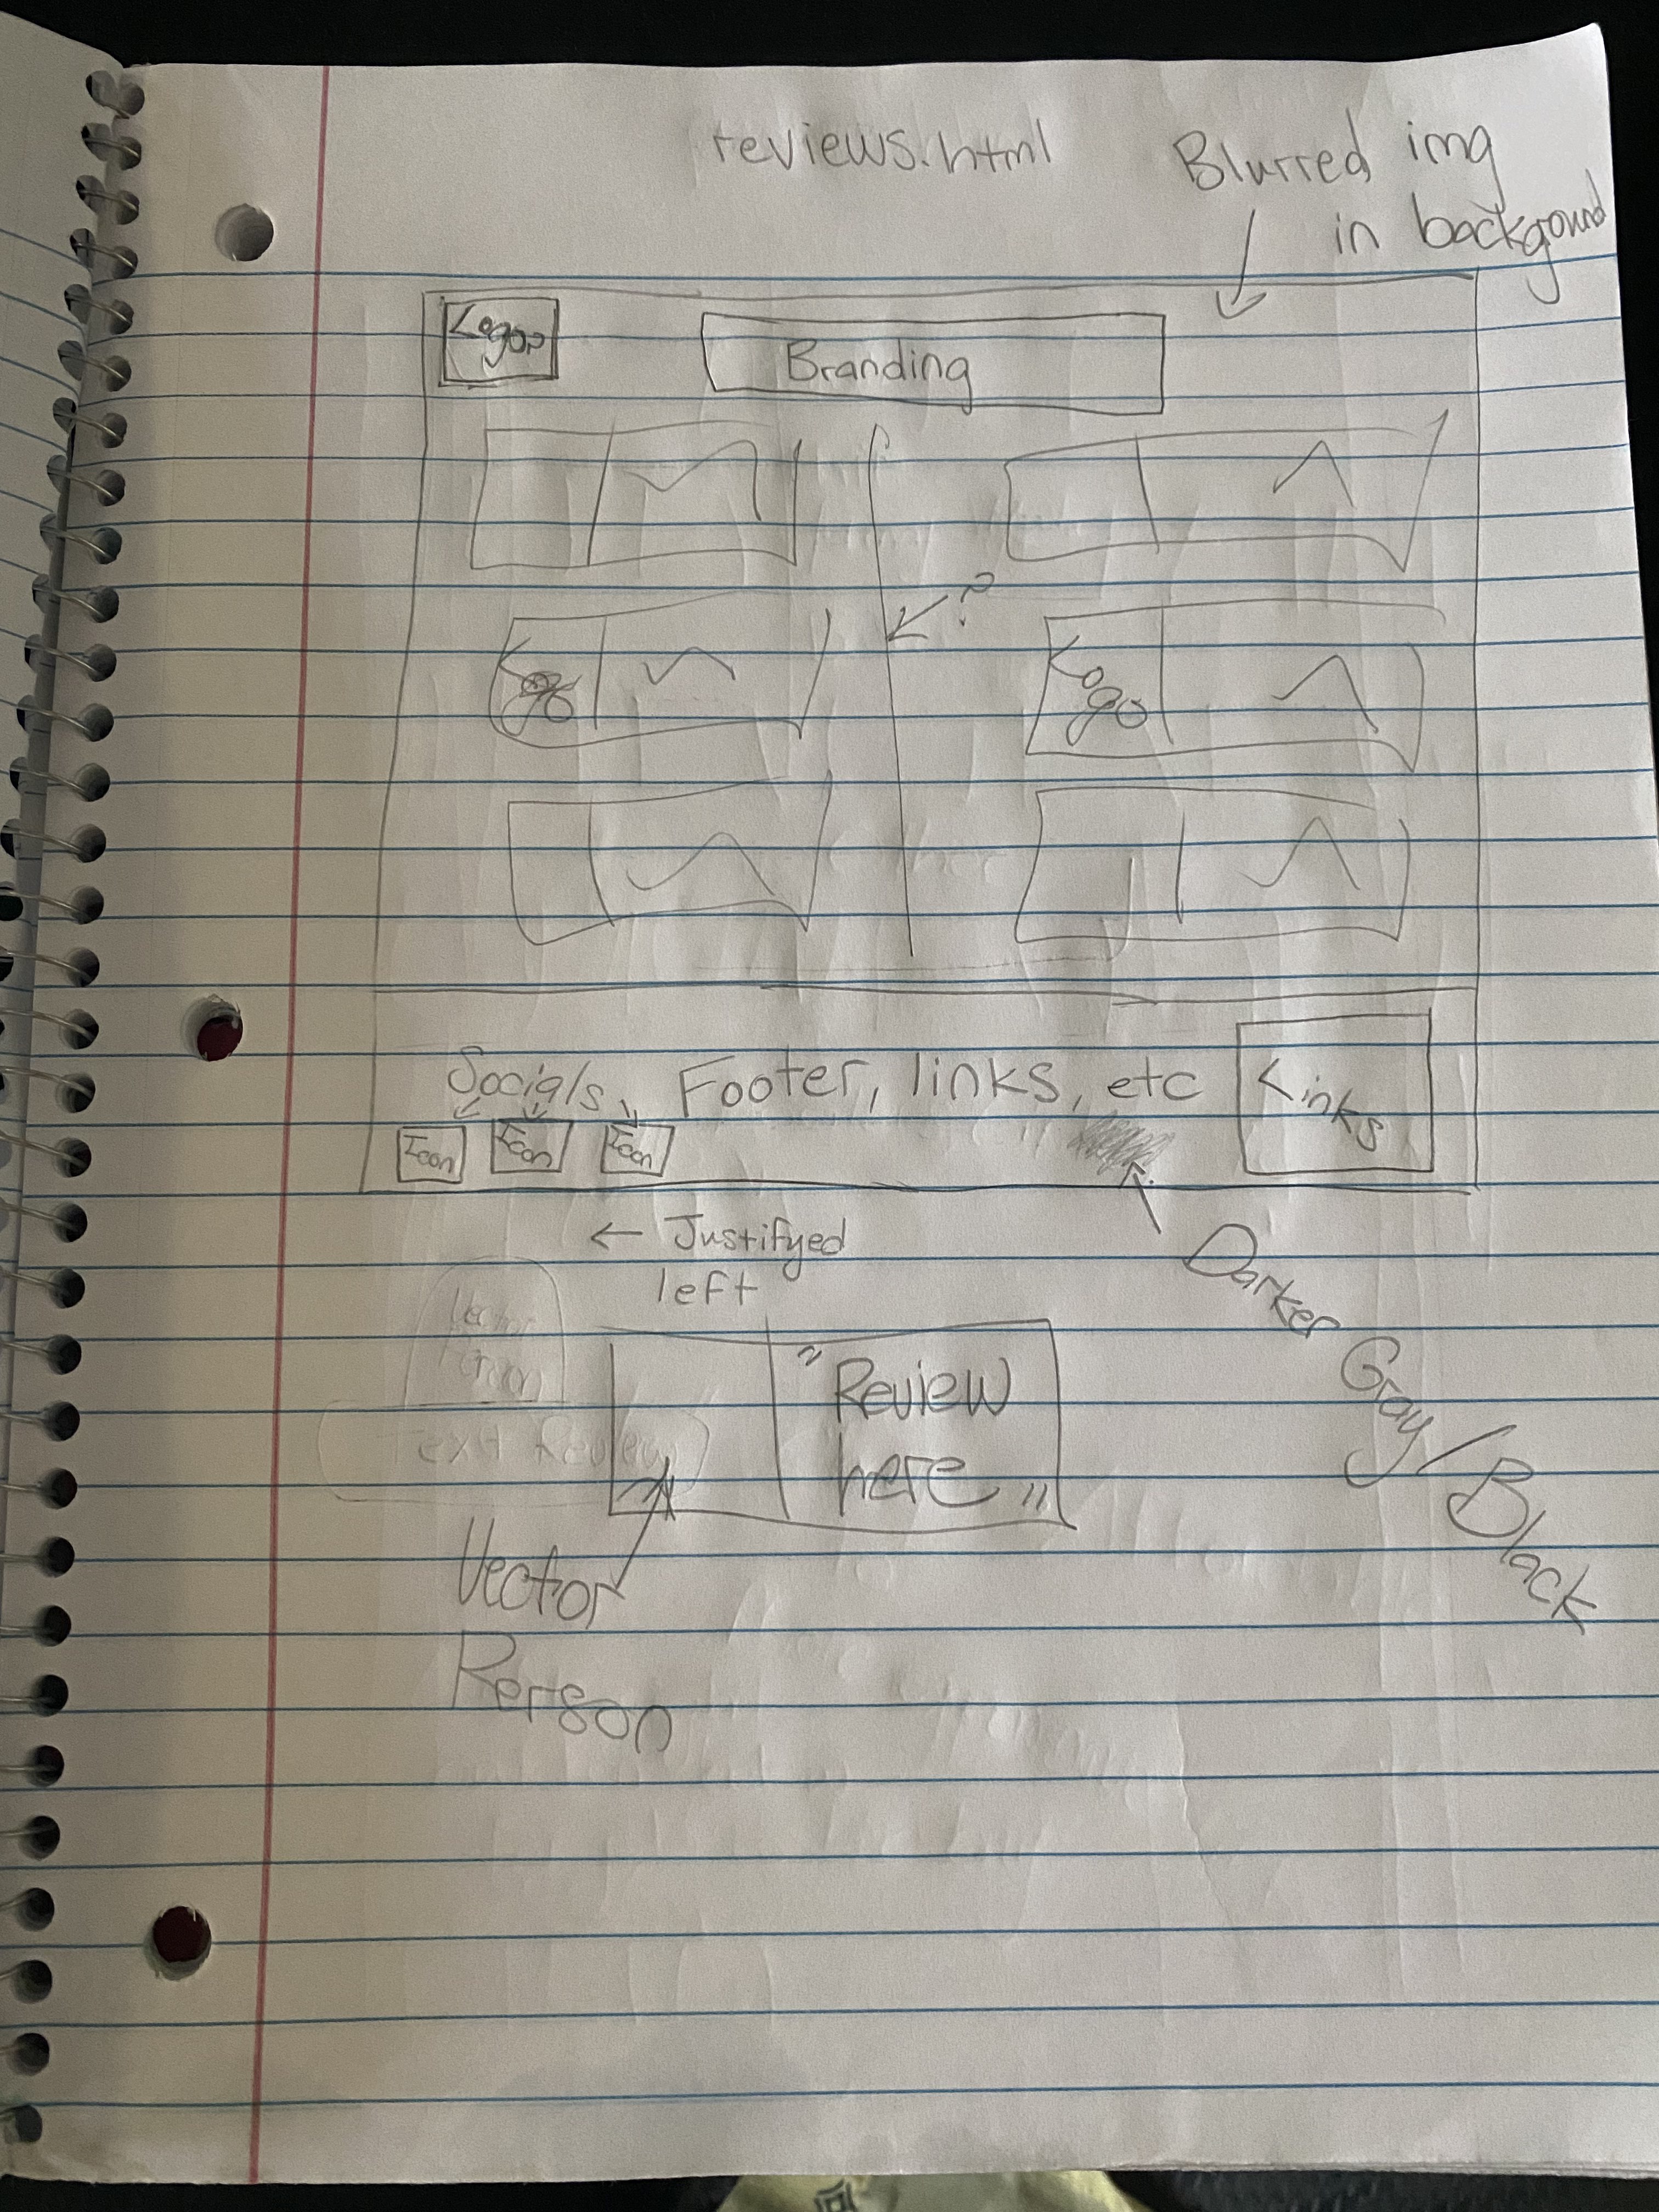 reviews.html
Blurred img
in background
Logo?
Branding
?
Logo
Logo
Socials
Footer, links, etc
Links
Icon
Icon
Icon
← Justifyed
left
Darker Gray/Black
Vector
Person
Text Review
"Review
here"
Vector
Person